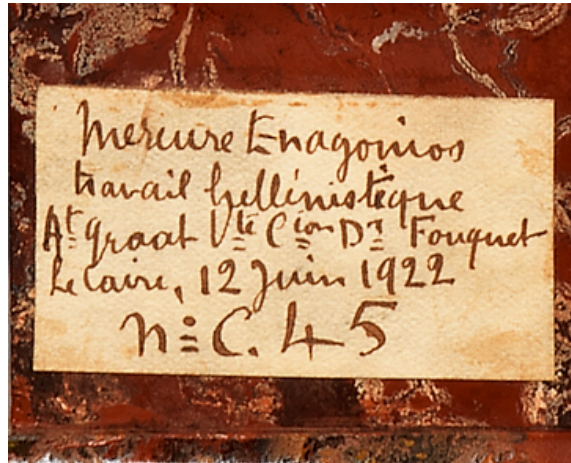 Mercure Enagonios
travail hellénistique
At. graat Vte Cion Dr Fouquet
Le Caire, 12 Juin 1922
no C. 45